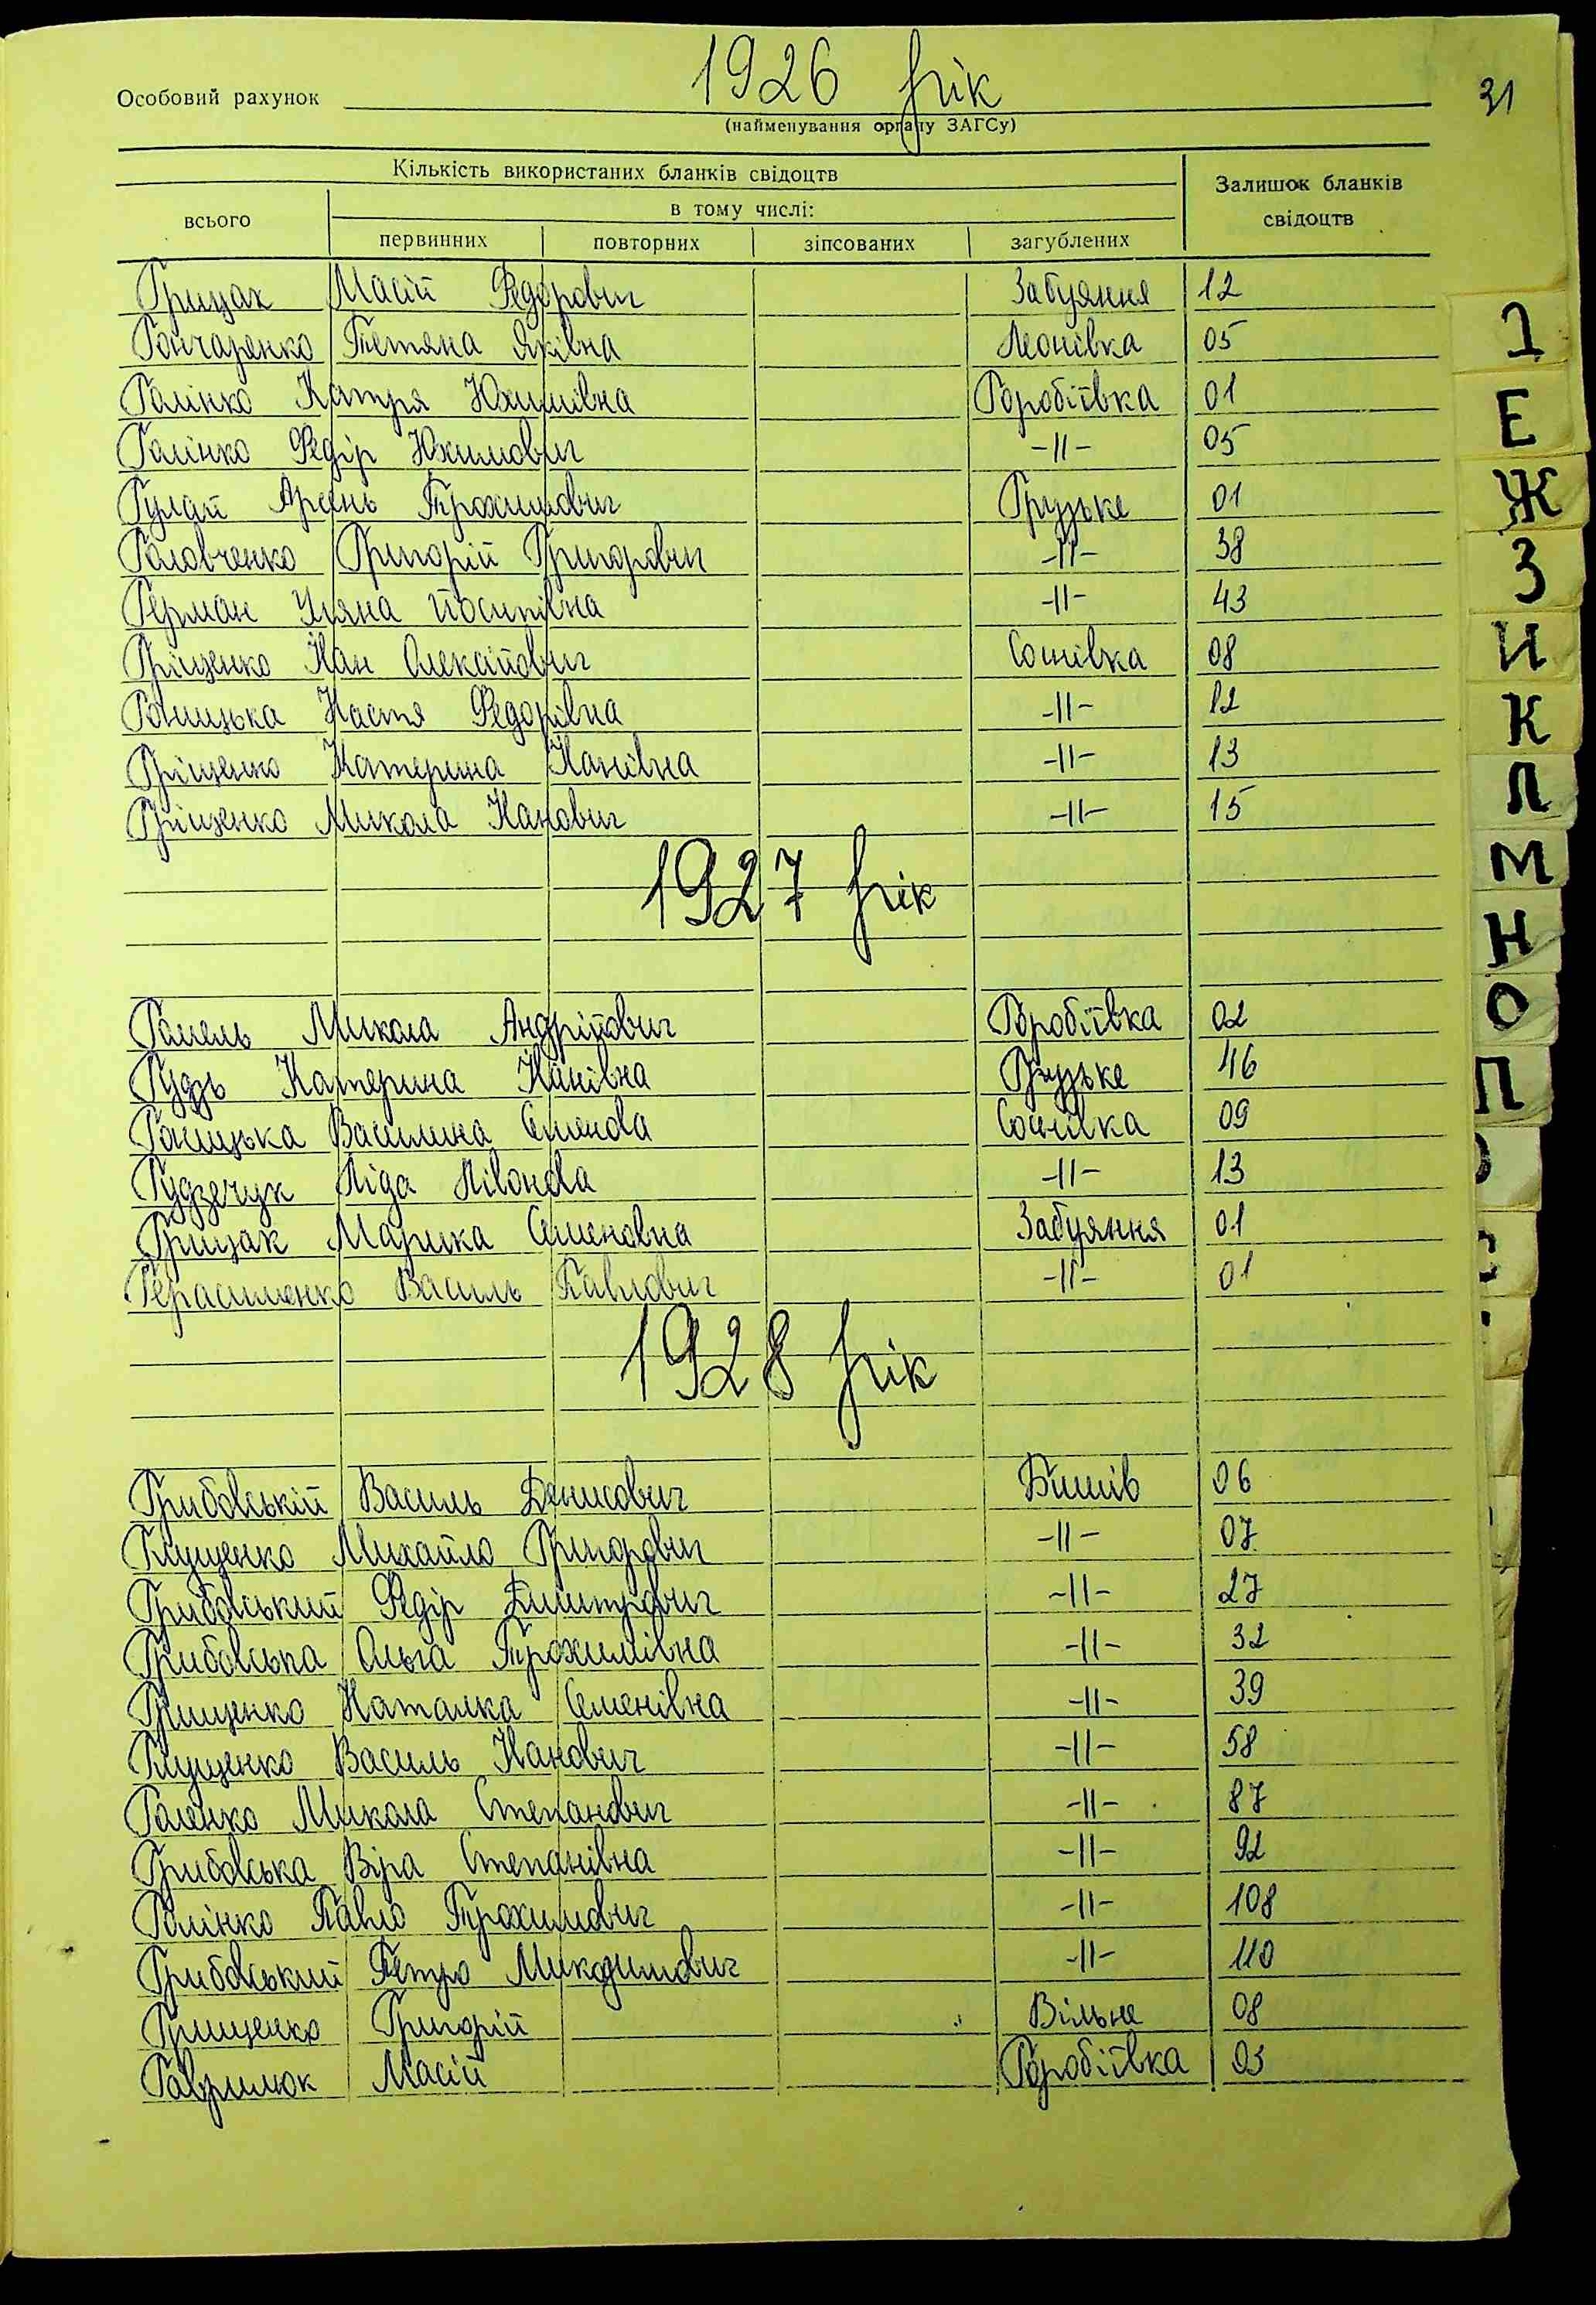 1926 рік
31
Особовий рахунок
(найменування органу ЗАГСу)
Кількість використаних бланків свідоцтв
Залишок бланків свідоцтв
всього
в тому числі:
первинних повторних зіпсованих загублених
Грицак Масій Федорович Забуяння 12
Гончаренко Тетяна Яківна Леонівка 05
Галінко Катря Юхимівна Горобіївка 01
Галінко Федір Юхимович -11- 05
Гулай Арсень Трохимович Грузьке 01
Головченко Григорій Григорович -11- 38
Герман Уляна Йосипівна -11- 43
Гріценко Іван Олексійович Соснівка 08
Настя Федорівна -11- 12
Гріценко Катерина Іванівна -11- 13
Гріценко Микола Іванович -11- 15
1927 рік
Гамель Микола Андрійович Горобіївка 02
Гудзь Катерина Іванівна Грузьке 46
Василина Семенова Соснівка 09
Гудзечук Ліда -11- 13
Грицак Марика Семеновна Забуяння 01
Герасименко Василь Павлович -11- 01
1928 рік
Грибовській Василь Денисович Бишів 06
Глущенко Михайло Григорович -11- 07
Грибовський Федір Дмитрович -11- 27
Грибовська Ольга Трохимівна -11- 32
Грищенко Наталка Семенівна -11- 39
Глущенко Василь Іванович -11- 58
Галенко Микола Степанович -11- 87
Грибовська Віра Степанівна -11- 92
Галінко Павло Трохимович -11- 108
Грибовський Петро Микодимович -11- 110
Грищенко Григорій Вільне 08
Гаврилюк Масій Горобіївка 03
Е
Ж
З
И
К
Л
М
Н
О
П